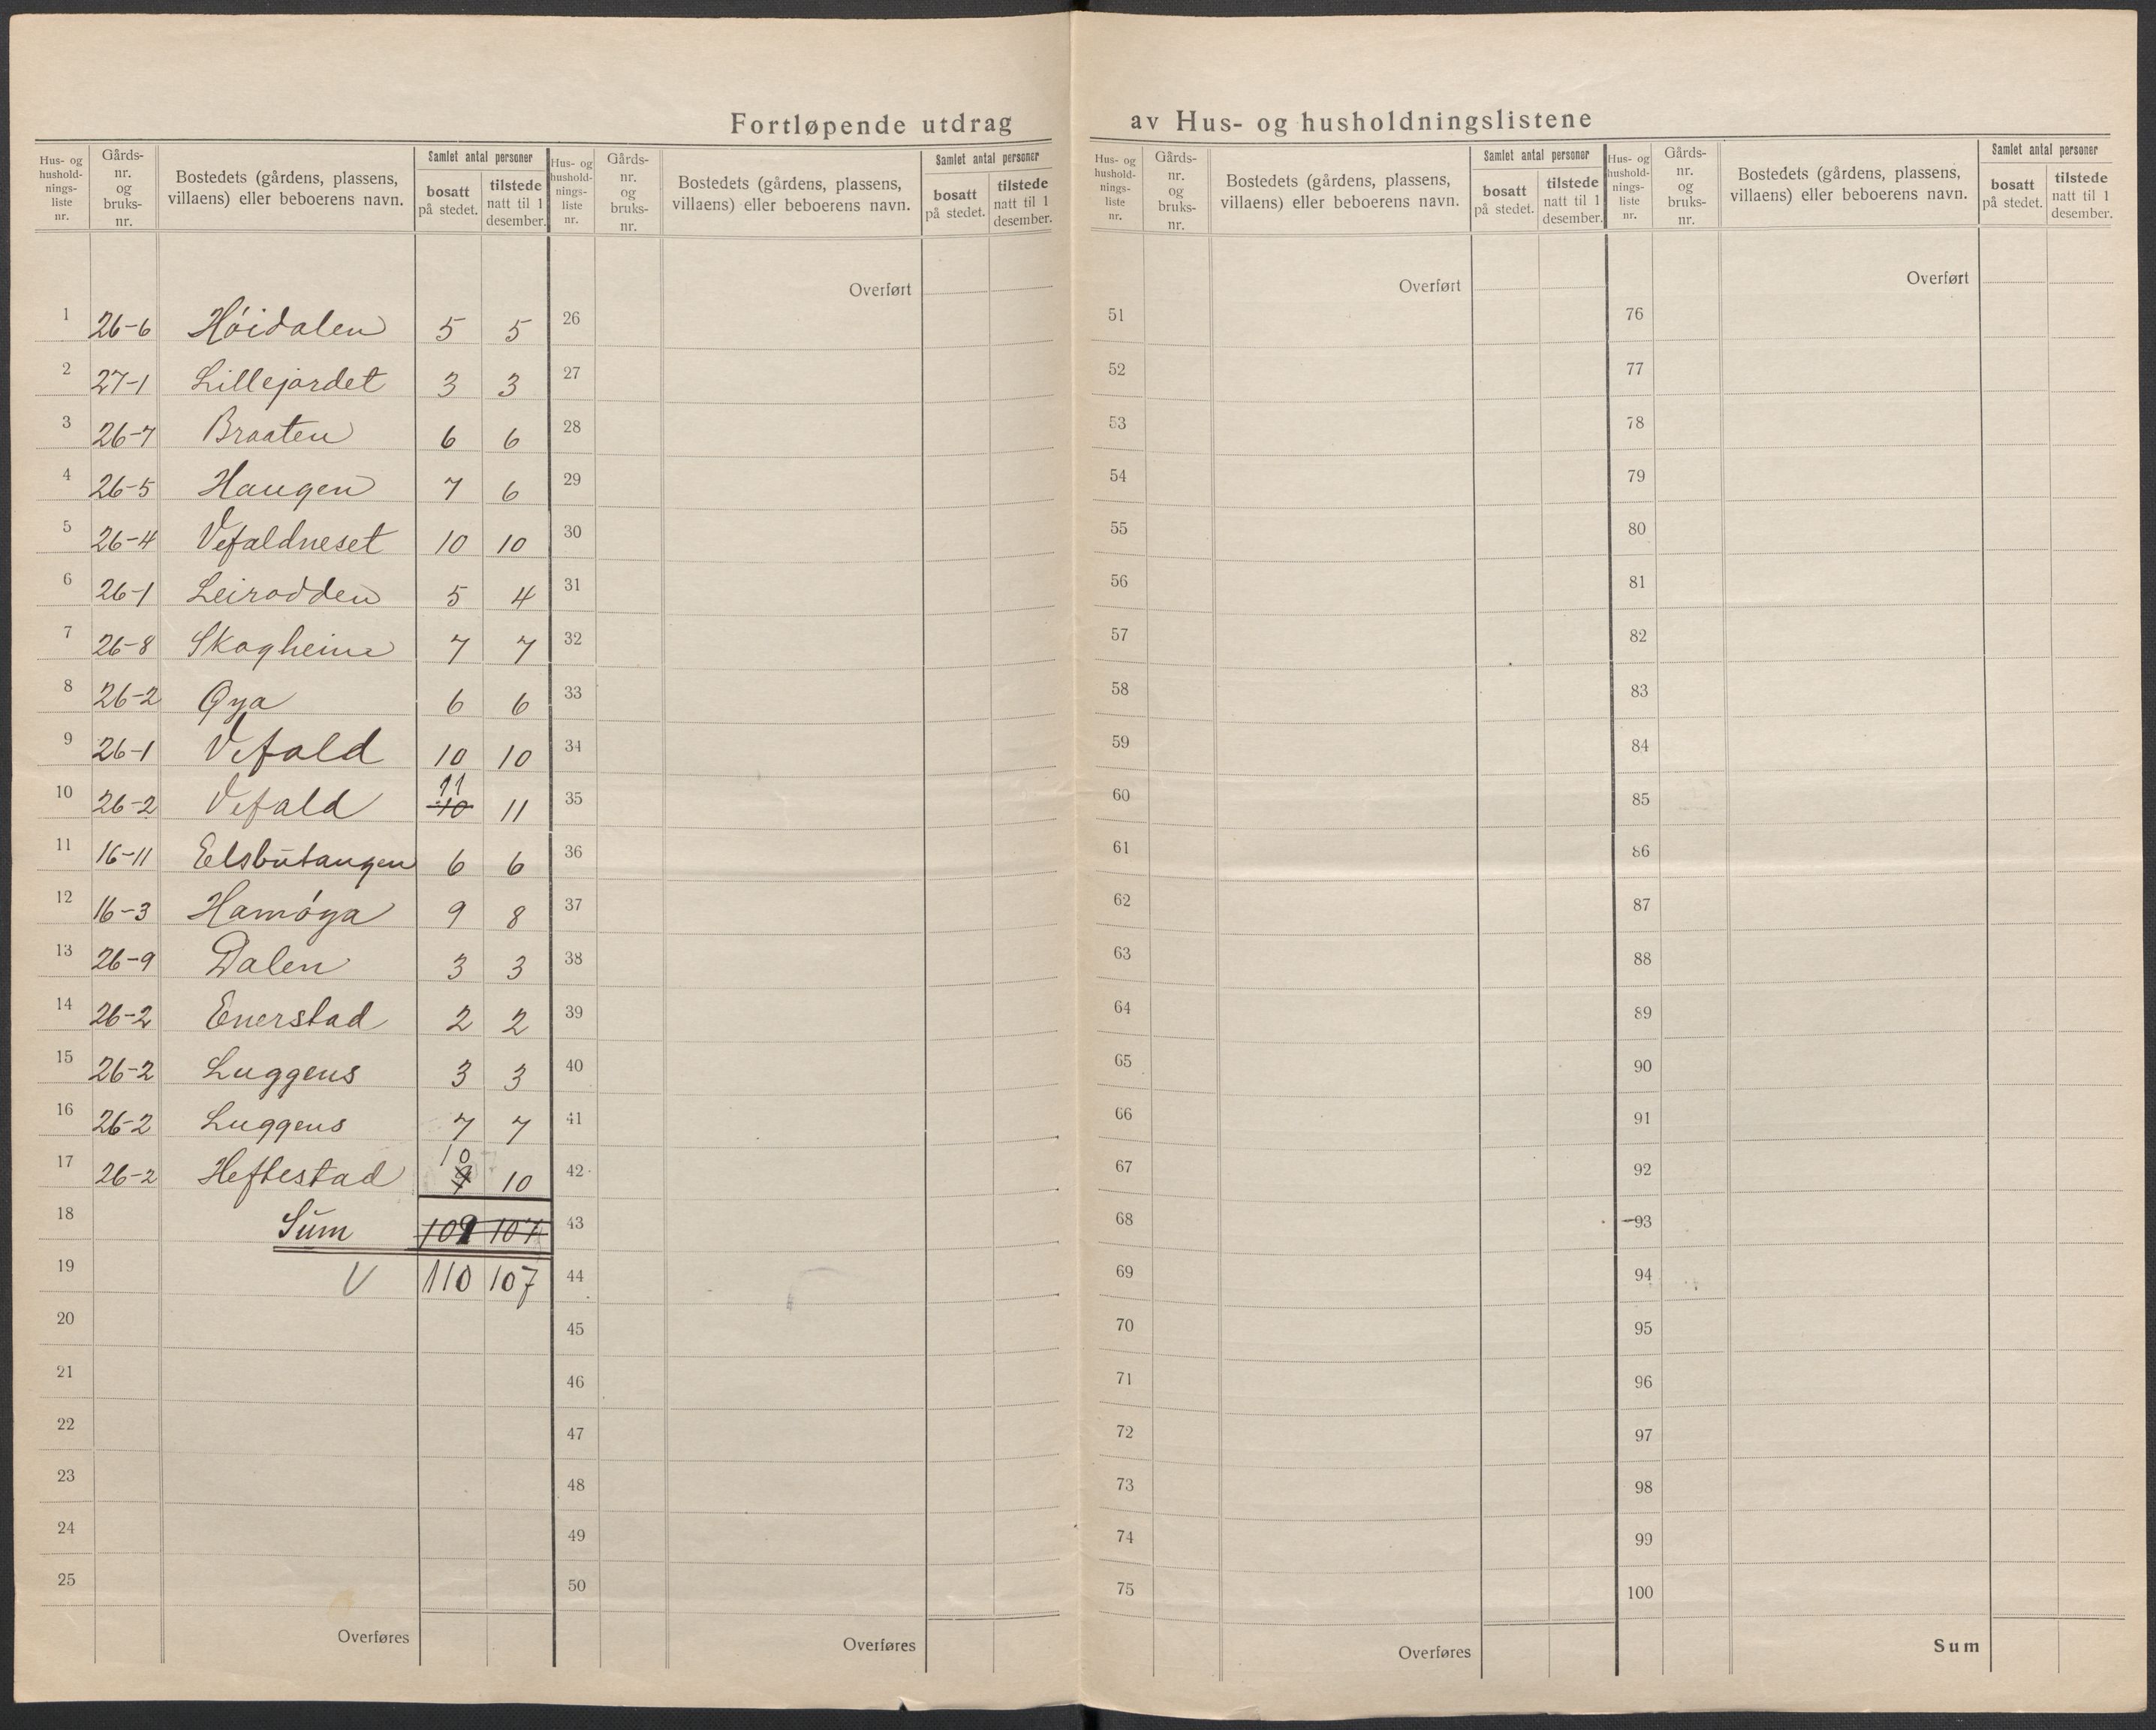 Fortløpende utdrag av Hus- og husholdningslistene
Hus- og hushold-nings-liste nr. Gårds-nr. og bruks-nr. Bostedets (gårdens, plassens, villaens) eller beboerens navn. Samlet antal personer bosatt på stedet. tilstede natt til 1 desember.
1 26-6 Höidalen 5 5
2 27-1 Lillejordet 3 3
3 26-7 Braaten 6 6
4 26-5 Haugen 7 6
5 26-4 Vefaldneset 10 10
6 26-1 Leirodden 5 4
7 26-8 Skogheim 7 7
8 26-2 Øya 6 6
9 26-1 Vefald 10 10
10 26-2 Vefald 11 10 11
11 16-11 Eelsbutangen 6 6
12 16-3 Hamöya 9 8
13 26-9 Dalen 3 3
14 26-2 Enerstad 2 2
15 26-2 Luggens 3 3
16 26-2 Luggens 7 7
17 26-2 Heftestad 10 10
18 Sum 109 107
19 V 110 107
20
21
22
23
24
25
Overføres
Hus- og hushold-nings-liste nr. Gårds-nr. og bruks-nr. Bostedets (gårdens, plassens, villaens) eller beboerens navn. Samlet antal personer bosatt på stedet. tilstede natt til 1 desember.
Overført
26
27
28
29
30
31
32
33
34
35
36
37
38
39
40
41
42
43
44
45
46
47
48
49
50
Overføres
Hus- og hushold-nings-liste nr. Gårds-nr. og bruks-nr. Bostedets (gårdens, plassens, villaens) eller beboerens navn. Samlet antal personer bosatt på stedet. tilstede natt til 1 desember.
Overført
51
52
53
54
55
56
57
58
59
60
61
62
63
64
65
66
67
68
69
70
71
72
73
74
75
Overføres
Hus- og hushold-nings-liste nr. Gårds-nr. og bruks-nr. Bostedets (gårdens, plassens, villaens) eller beboerens navn. Samlet antal personer bosatt på stedet. tilstede natt til 1 desember.
Overført
76
77
78
79
80
81
82
83
84
85
86
87
88
89
90
91
92
93
94
95
96
97
98
99
100
Sum